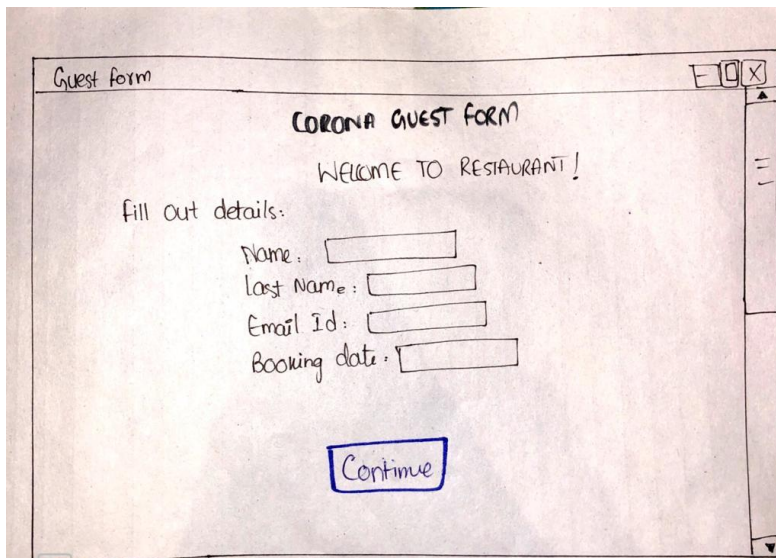 Guest form
CORONA GUEST FORM
WELCOME TO RESTAURANT!
fill out details:
Name:
last Name:
Email Id:
Booking date:
Continue